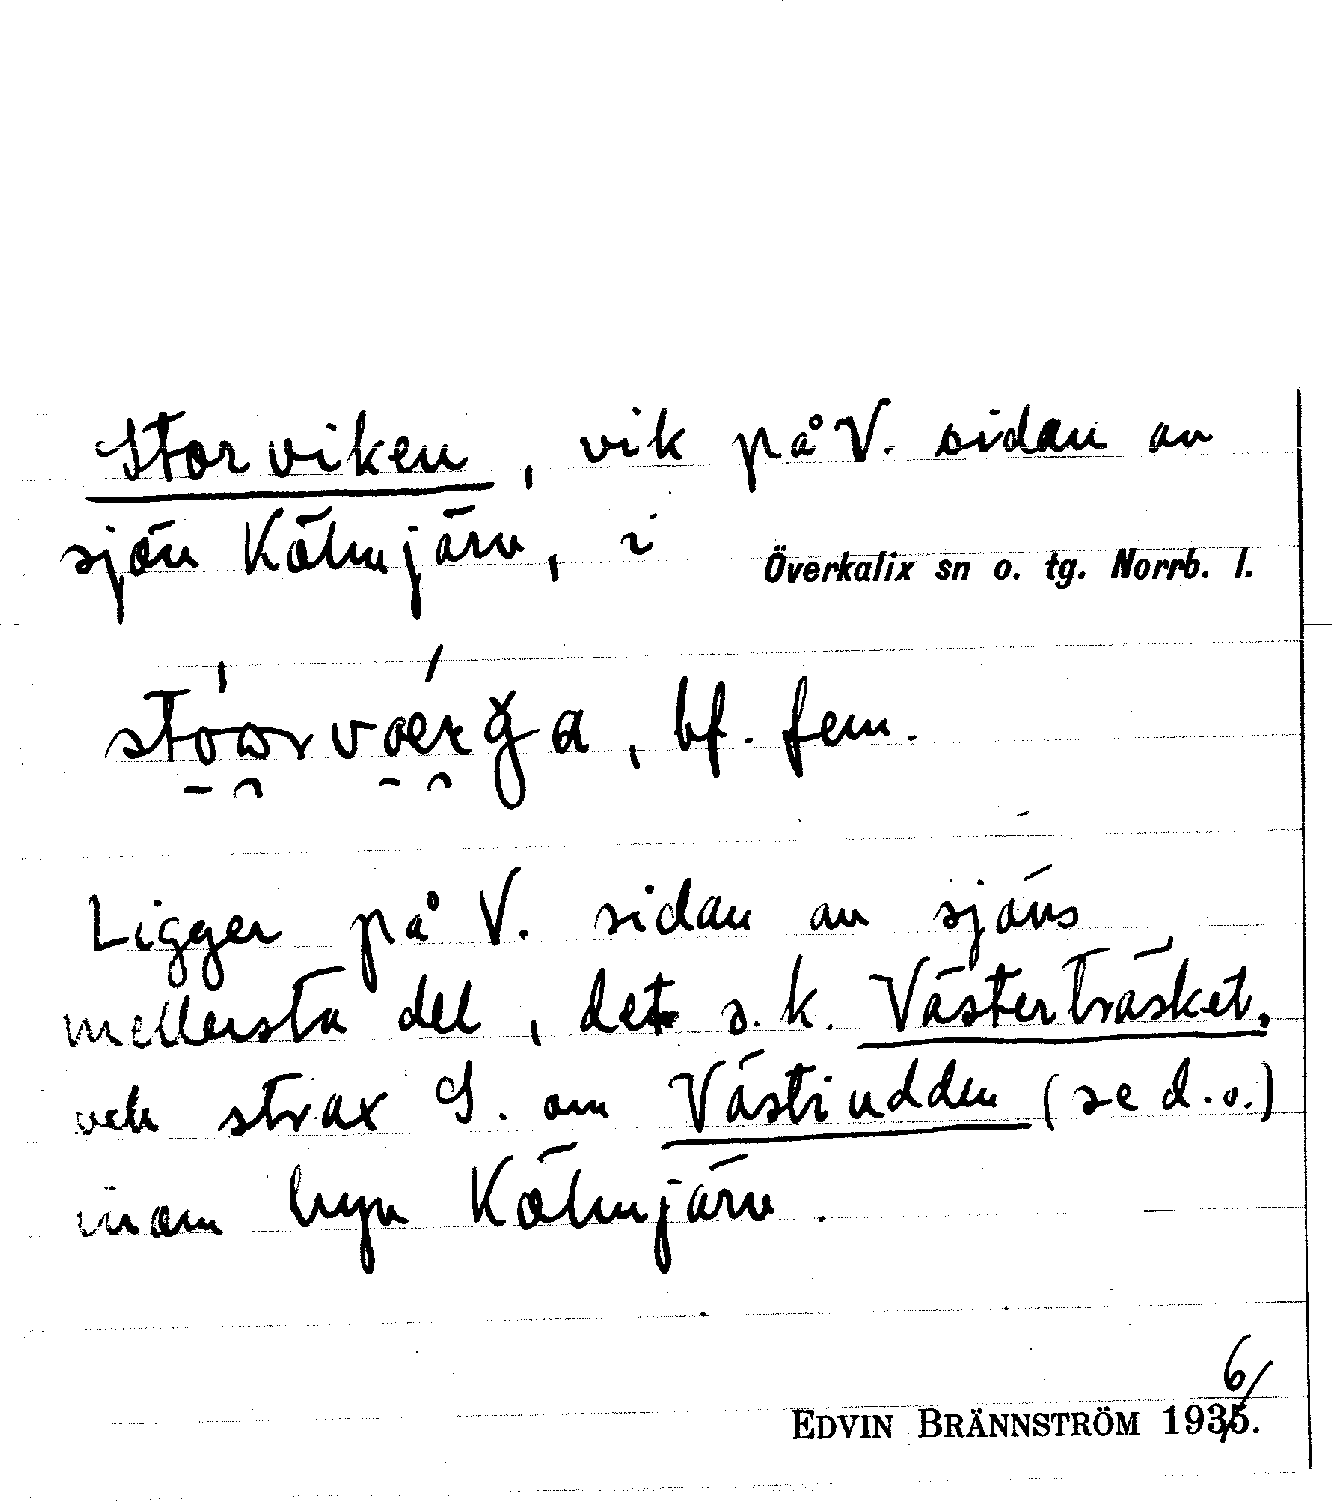 Storviken, vik på V. sidan av
sjön Kölmjärv, i Överkalix sn o. tg. Norrb. l.
bf. fem.
Ligger på V. sidan av sjöns
mellersta del, det s. k. Västerträsket,
och strax S. om Västiudden (se d. o.)
inom byn Kölmjärv.
6/
EDVIN BRÄNNSTRÖM 1935.